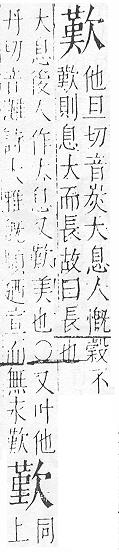 歎
他旦切音炭大息人慨穀不
歎則息大而長故曰長也
大息後人作太息又歎美也○又叶他
丹切音灘詩大雅旣順迺宣而無永歎
歎
同
上